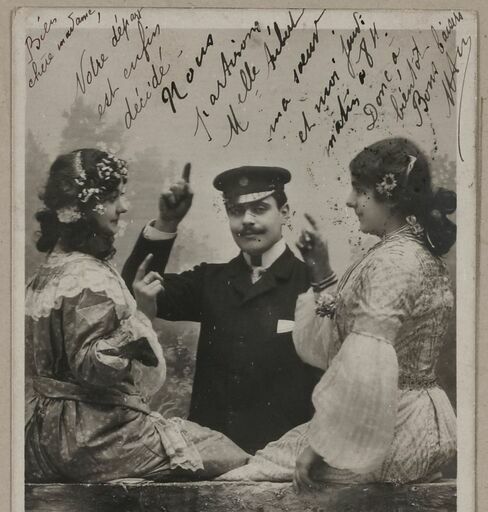 Bien
chère madame,
Notre départ
est enfin
décidé -
Nous
partirons
Melle
ma sœur
et moi jeudi
matin à 8H.
Donc à
bientôt.
Bons baisers